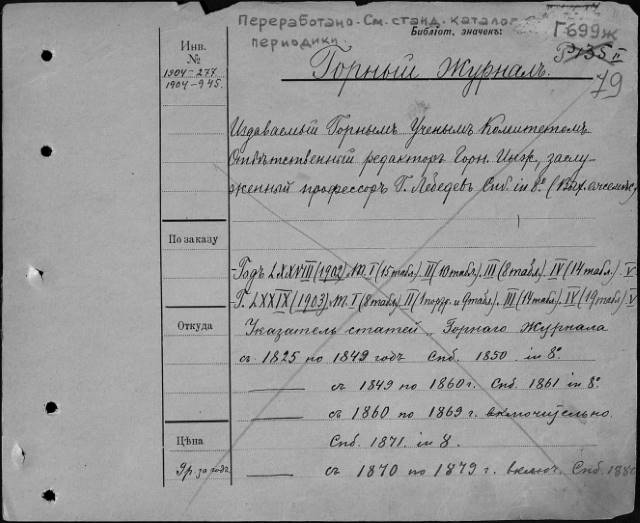 Переработано. См. станд. каталог
периодики.
Библіот. значекъ:
Г699ж
Г135 II
79
Инв.
№
1904-277
1904-945.
Горный журналъ.
Издаваемый Горнымъ Ученымъ Комитетомъ
Отвѣтственный редакторъ Горн. Инж., заслу-
женный профессоръ Г. Лебедевъ Спб. in 8º.
По заказу
Годъ LXXVIII (1902). т. I (15 табл.). II (10 табл.). III (8 табл.). IV (14 табл.). V
Г. LXXIX (1903). т. I (8 табл.) II (1 портр. и 9 табл.). III (14 табл.). IV (19 табл.) V
Откуда
Указатель статей „Горнаго Журнала
съ 1825 по 1849 годъ Спб. 1850 in 8º.
съ 1849 по 1860 г. Спб. 1861 in 8º.
съ 1860 по 1869 г. включительно.
Цѣна
Спб. 1871. in 8.
9р. за годъ
съ 1870 по 1879 г. включ. Спб.